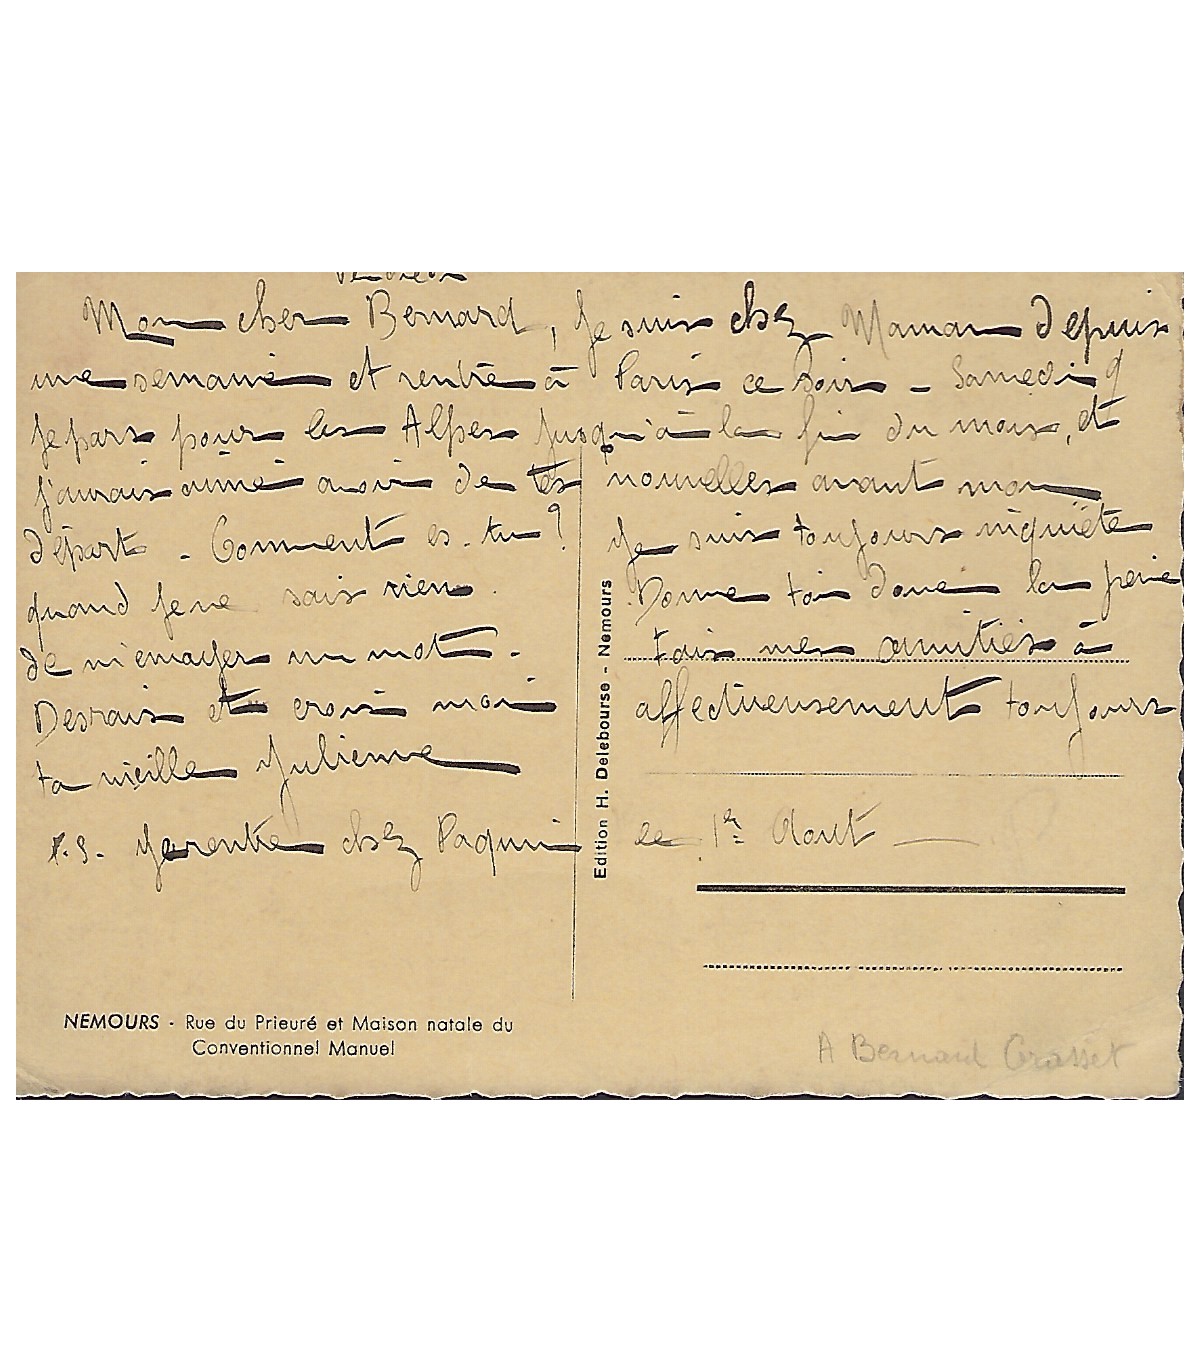 Mon cher Bernard, Je suis chez Maman depuis
une semaine et rentre à Paris ce soir - Samedi 9
Je pars pour les Alpes jusqu'à la fin du mois, et
j'aurais aimé avoir de tes nouvelles avant mon
départ - Comment es-tu? Je suis toujours inquiète
quand je ne sais rien. Donne toi donc la peine
de m'envoyer un mot - Fais mes amitiés à
Desrais et crois moi affectueusement toujours
ta vieille Julienne
P.S. Je rentre chez Paquin le 1er Aout —
8
Edition H. Delebourse - Nemours
NEMOURS - Rue du Prieuré et Maison natale du
Conventionnel Manuel
A Bernard Grasset